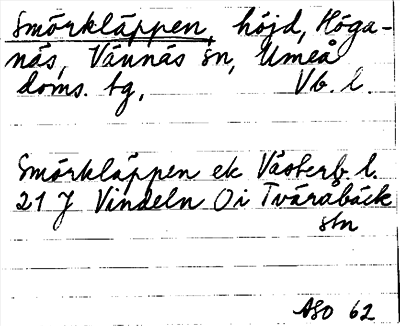 Smörkläppen, höjd, Höga-
näs, Vännäs sn, Umeå
doms. tg, Vb. l.
Smörkläppen ek Västerb. l.
21 J Vindeln Oi Tväråbäck
stn
ASO 62